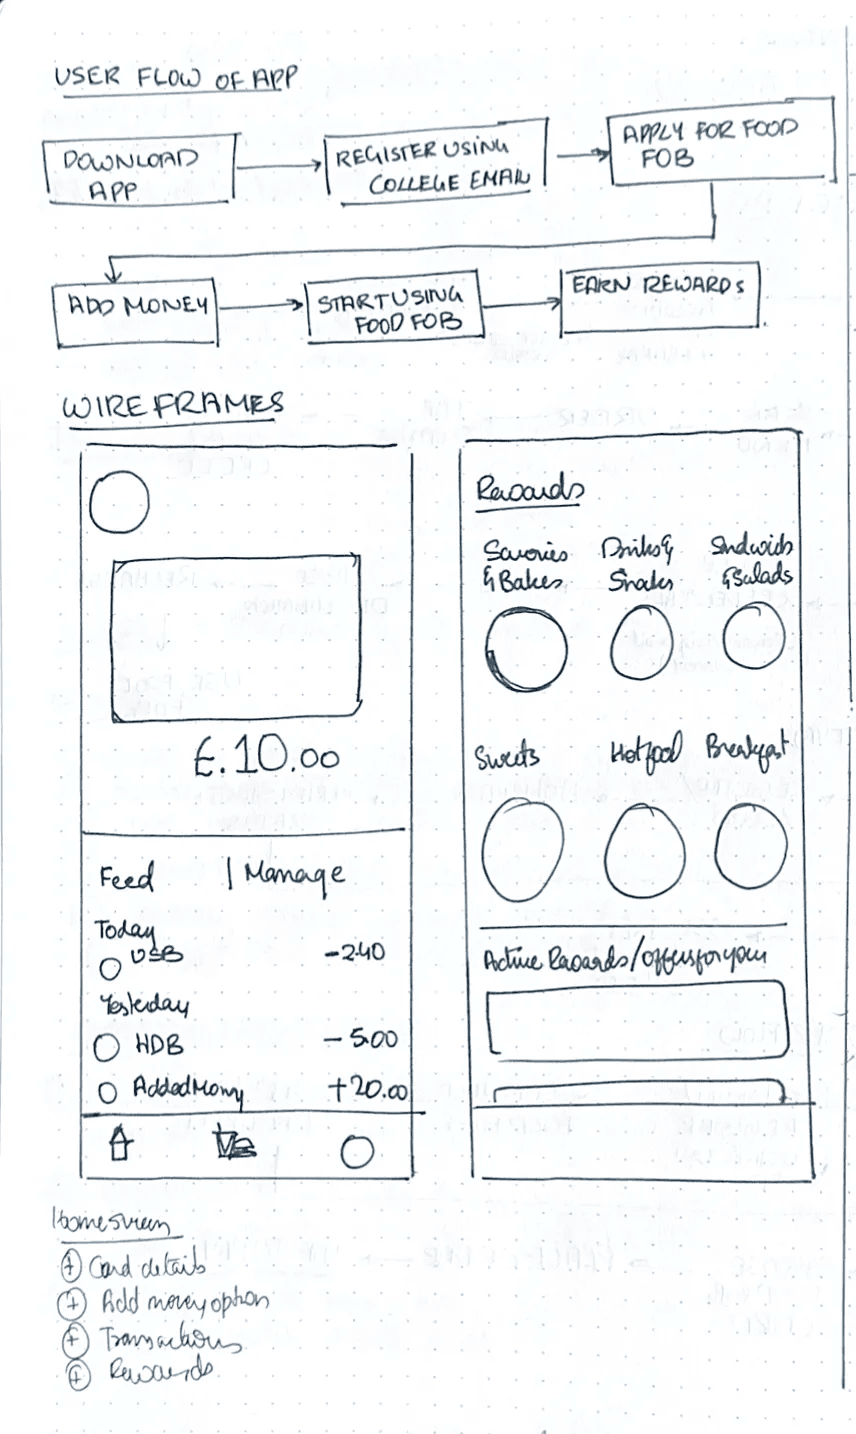 USER FLOW OF APP
DOWNLOAD
APP
REGISTER USING
COLLEGE EMAIL
APPLY FOR FOOD
FOB
ADD MONEY
START USING
FOOD FOB
EARN REWARDS
WIREFRAMES
£.10.00
Feed | Manage
Today
USB -2.40
Yesterday
HDB -5.00
Added Money +20.00
Rewards
Savories
& Bakes
Drinks &
Snaks
Sndwich
& Salads
Sweets
Hot food
Breakfast
Active Rewards/offers for you
Home Screen
+ Card details
+ Add money option
+ Transactions
+ Rewards